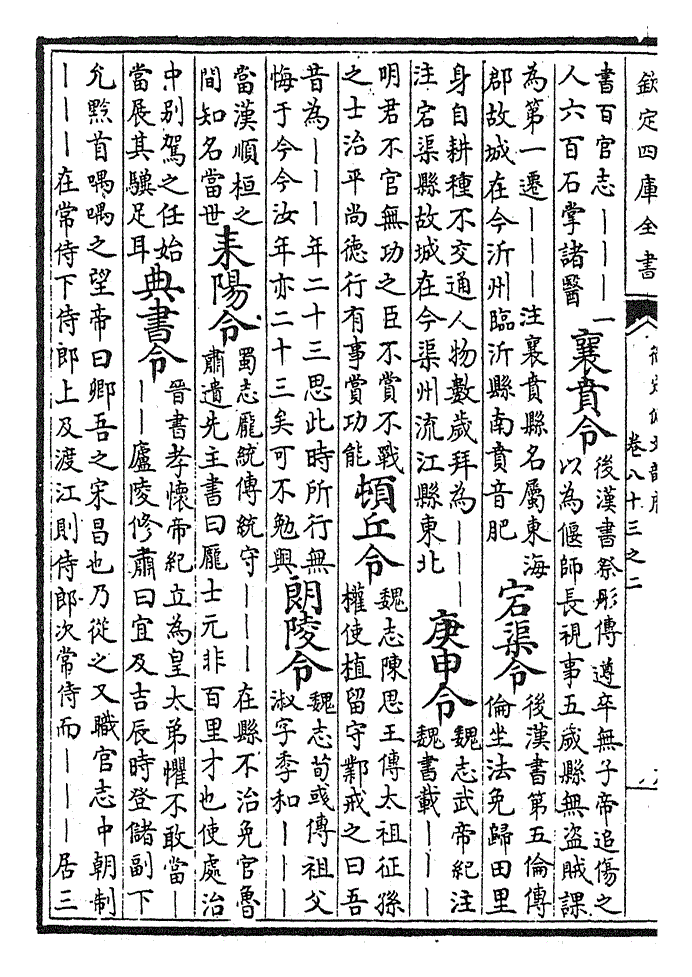 欽定四庫全書
卷八十三之二
書百官志———一
人六百石掌諸醫
襄賁令
後漢書祭彤傳遵卒無子帝追傷之
以為偃師長視事五歲縣無盜賊課
為第一遷———注襄賁縣名屬東海
郡故城在今沂州臨沂縣南賁音肥
宕渠令
後漢書第五倫傳
倫坐法免歸田里
身自耕種不交通人物數歲拜為———
注宕渠縣故城在今渠州流江縣東北
庚申令
魏志武帝紀注
魏書載———
明君不官無功之臣不賞不戰
之士治平尚德行有事賞功能
頓丘令
魏志陳思王傳太祖征孫
權使植留守鄴戒之曰吾
昔為———年二十三思此時所行無
悔于今今汝年亦二十三矣可不勉與
朗陵令
魏志荀彧傳祖父
淑字季和———
當漢順桓之
間知名當世
耒陽令
蜀志龐統傳統守———在縣不治免官魯
肅遺先主書曰龐士元非百里才也使處治
中別駕之任始
當展其驥足耳
典書令
晉書孝懷帝紀立為皇太弟懼不敢當—
——廬陵修肅曰宜及吉辰時登儲副下
允黔首喁喁之望帝曰卿吾之宋昌也乃從之又職官志中朝制
———在常侍下侍郎上及渡江則侍郎次常侍而———居三